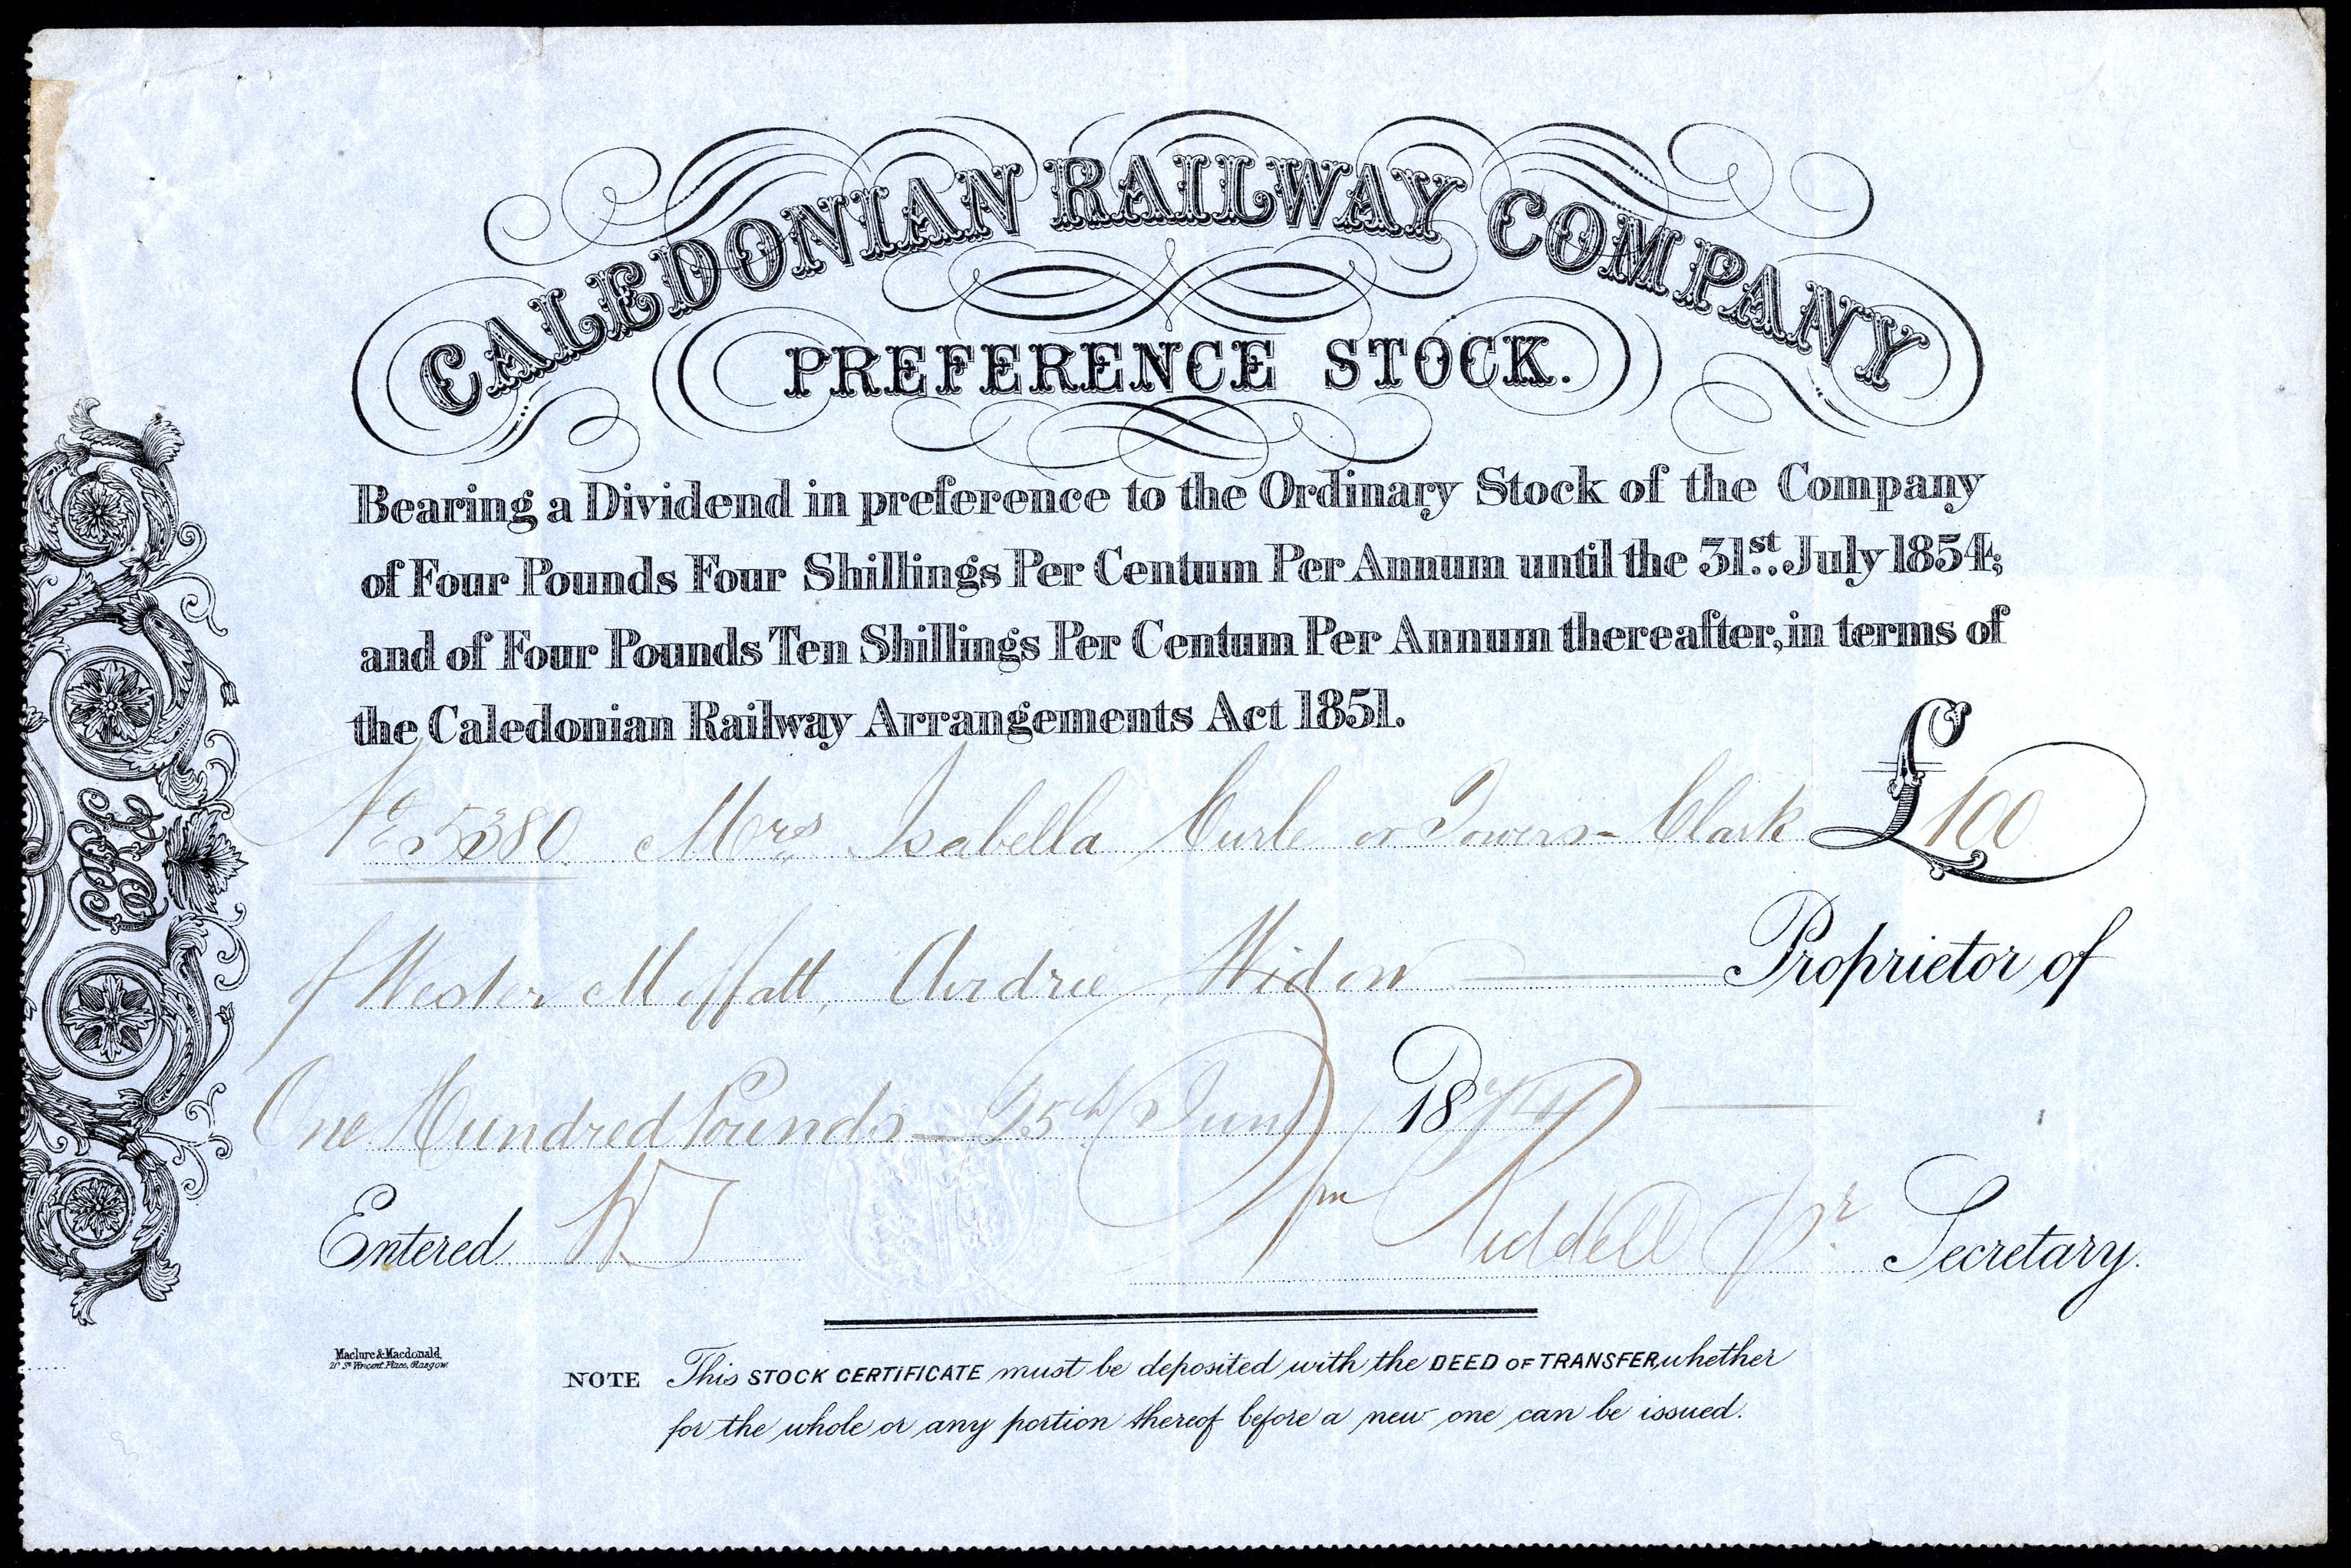 CALEDONIAN RAILWAY COMPANY
PREFERENCE STOCK.
Bearing a Dividend in preference to the Ordinary Stock of the Company
of Four Pounds Four Shillings Per Centum Per Annum until the 31st. July 1854;
and of Four Pounds Ten Shillings Per Centum Per Annum thereafter, in terms of
the Caledonian Railway Arrangements Act 1851.
No 5380 Mrs Isabella Curle or Towers-Clark £100
of Wester Moffatt, Airdrie, Widow Proprietor of
One Hundred Pounds - 25th June 1874
Entered Wm Riddell Secretary.
Maclure & Macdonald,
St Vincent Place, Glasgow
NOTE This STOCK CERTIFICATE must be deposited with the DEED OF TRANSFER, whether
for the whole or any portion thereof before a new one can be issued.